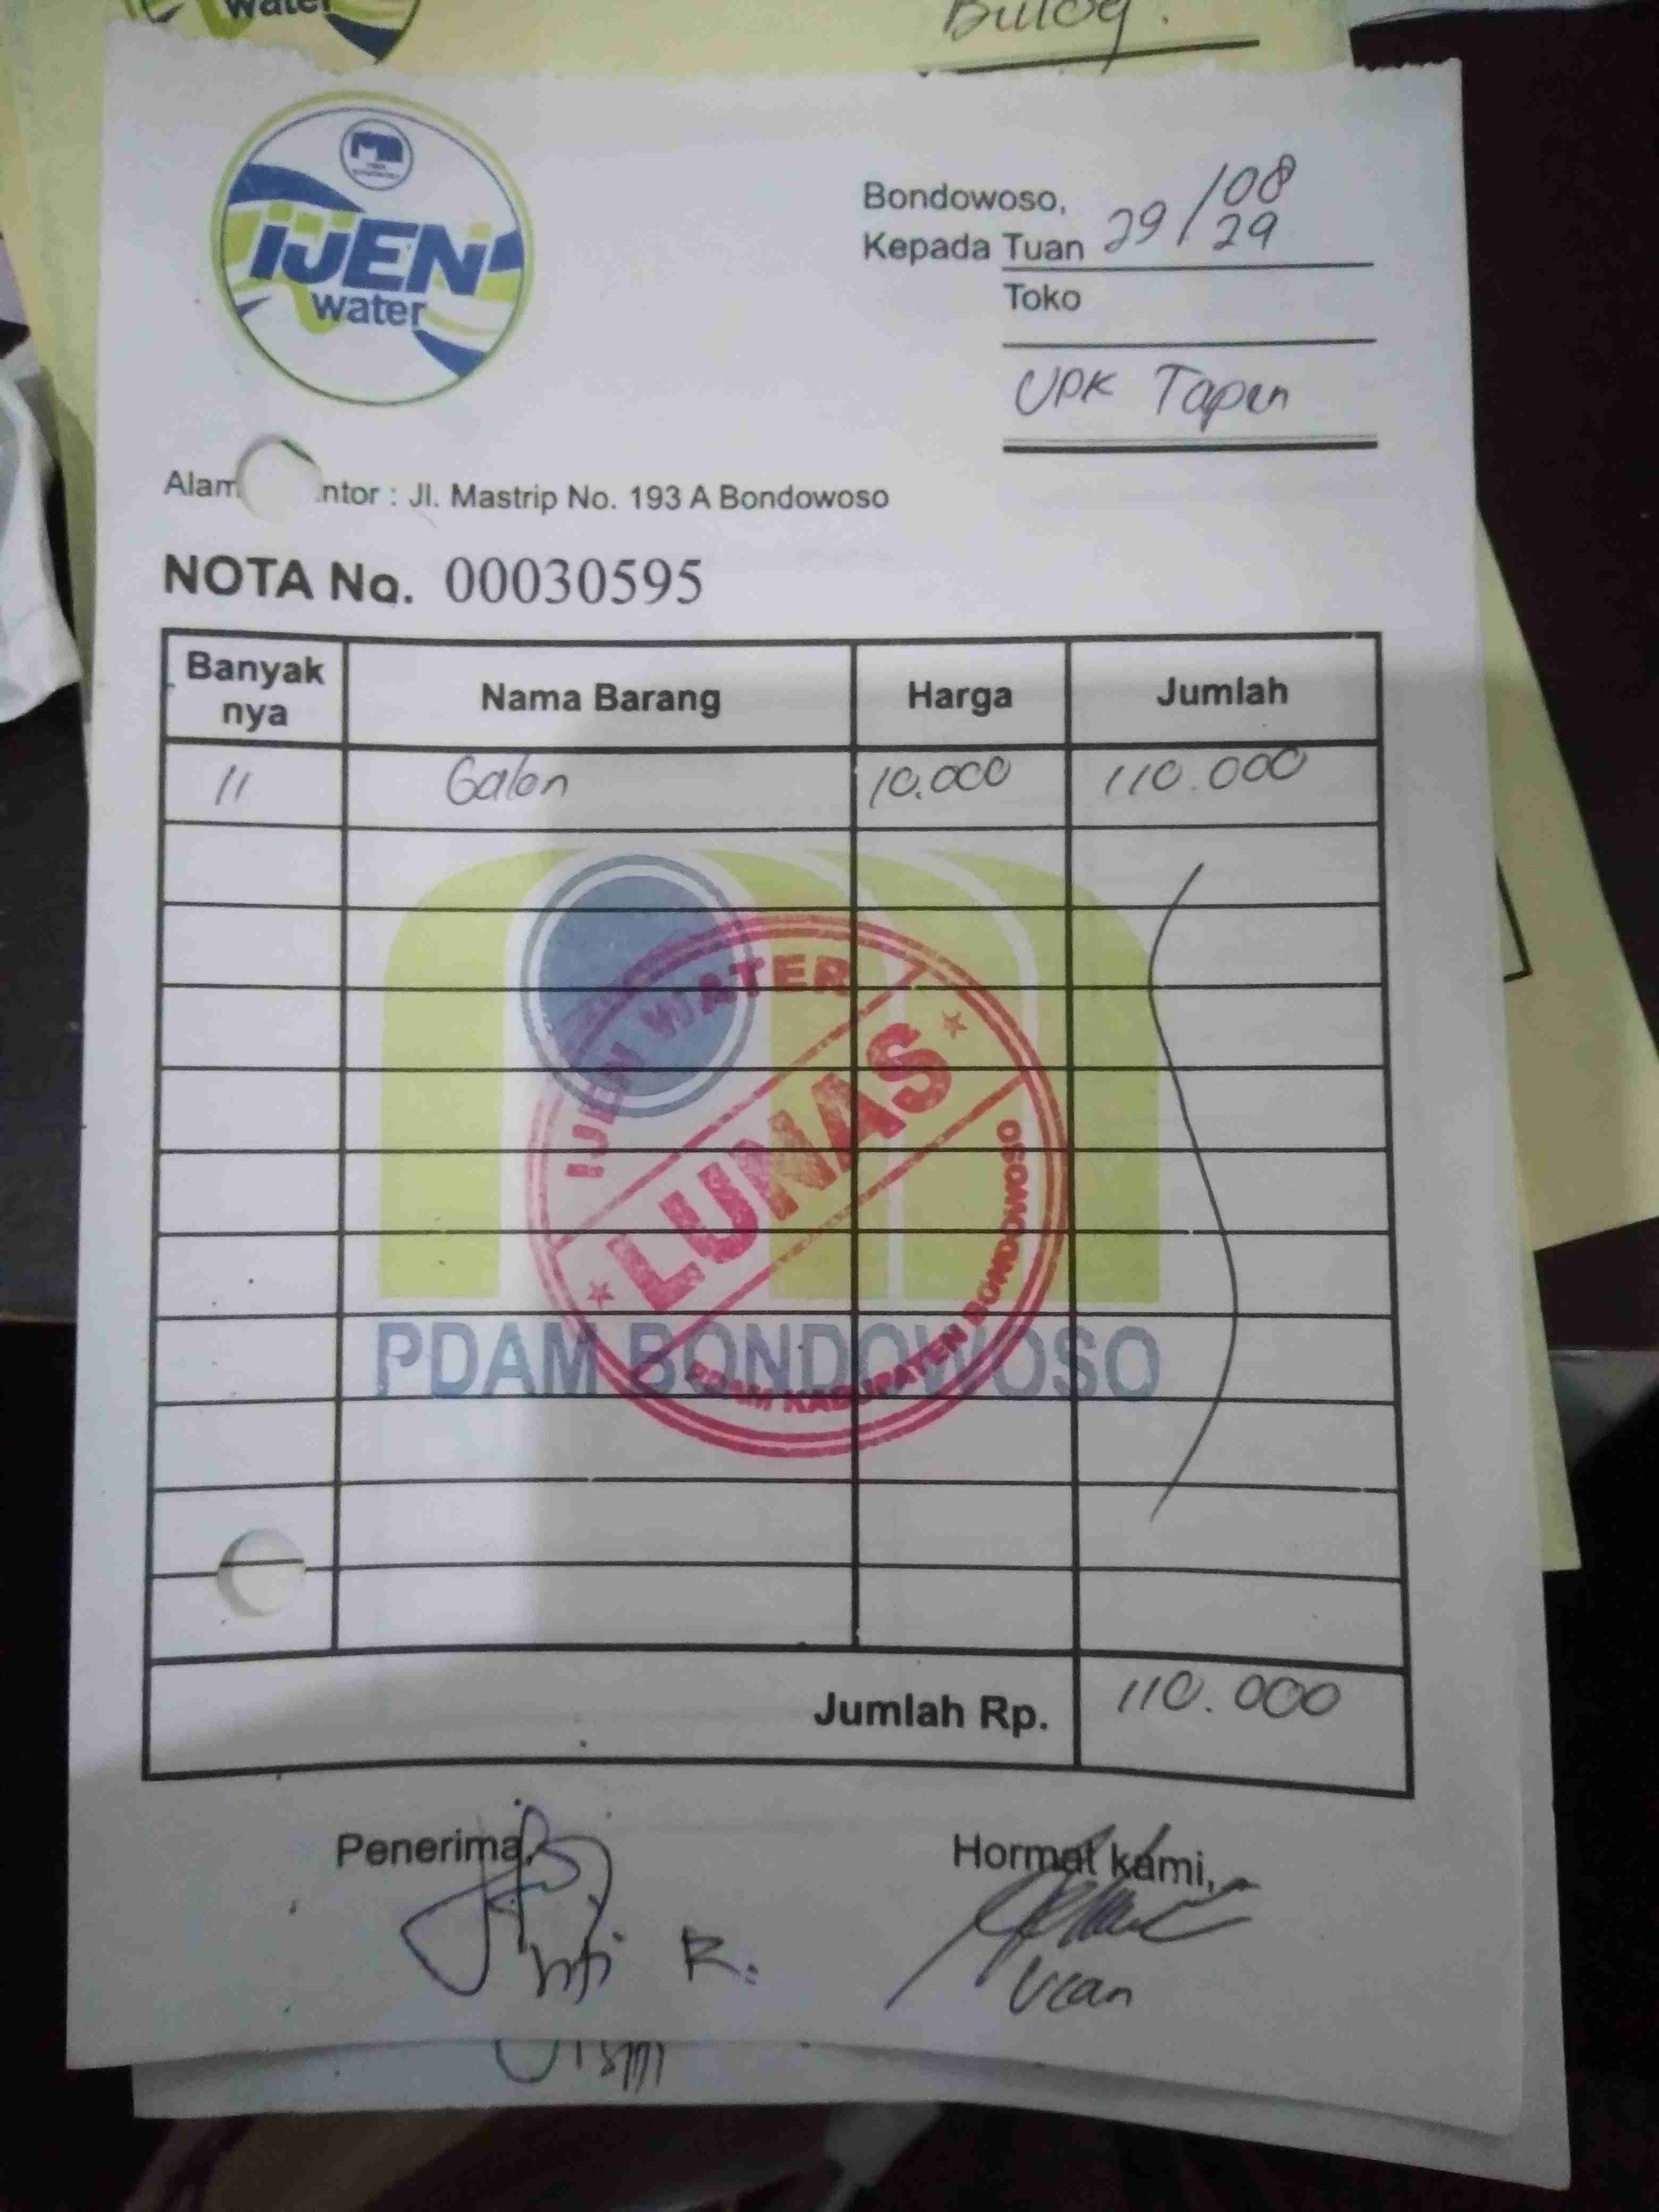 water
Bulog.
IJEN
water
Bondowoso, 29/08
29
Kepada Tuan
Toko
UPK Tapen
Alam ntor : Jl. Mastrip No. 193 A Bondowoso
NOTA No. 00030595
Banyak nya Nama Barang Harga Jumlah
11 Galon 10.000 110.000
IJEN WATER
LUNAS
PDAM KABUPATEN BONDOWOSO
PDAM BONDOWOSO
Jumlah Rp. 110.000
Penerima, Hormat kami,
R.